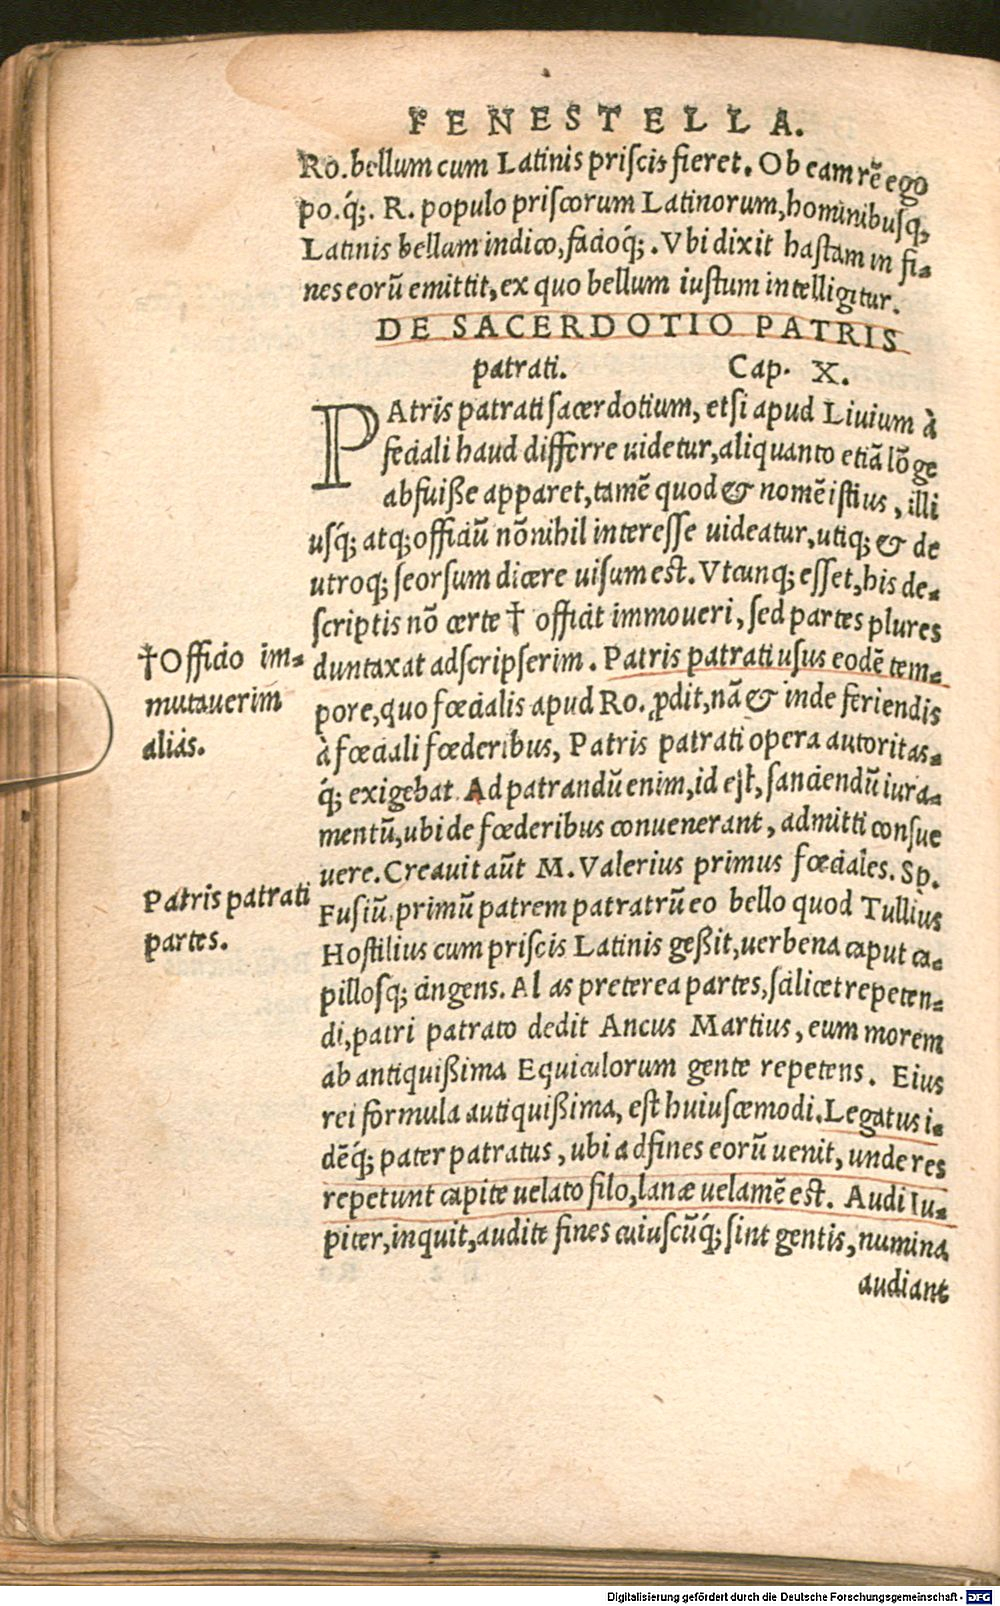 FENESTELLA.
Ro. bellum cum Latinis priscis fieret. Ob eam rẽ ego
po. q́;. R. populo priscorum Latinorum, hominibusq;
Latinis bellum indico, facioq́;. Vbi dixit hastam in fi-
nes eorũ emittit, ex quo bellum iustum intelligitur.
DE SACERDOTIO PATRIS
patrati. Cap. X.
PAtris patrati sacerdotium, etsi apud Liuium à
feciali haud differre uidetur, aliquanto etiã lõge
abfuiße apparet, tamẽ quod & nomẽ istius, illi
usq́; atq; officiũ nõnihil interesse uideatur, utiq; & de
utroq; seorsum dicere uisum est. Vtcunq; esset, his de-
scriptis nõ certe † officit immoueri, sed partes plures
duntaxat adscripserim. Patris patrati usus eodẽ tem-
pore, quo fœcialis apud Ro. ꝓdit, nã & inde feriendis
à fœciali fœderibus, Patris patrati opera autoritas-
q́; exigebat. Ad patrandũ enim, id est, sanciendũ iura-
mentũ, ubi de fœderibus conuenerant, admitti consue
uere. Creauit aũt M. Valerius primus fœciales. Sp.
Fusiũ primũ patrem patratrũ eo bello quod Tullius
Hostilius cum priscis Latinis geßit, uerbena caput ca-
pillosq; cingens. Al as preterea partes, scilicet repeten-
di, patri patrato dedit Ancus Martius, eum morem
ab antiquißima Equiculorum gente repetens. Eius
rei formula antiquißima, est huiuscemodi. Legatus i-
dẽq́; pater patratus, ubi ad fines eorũ uenit, unde res
repetunt capite uelato filo, lanæ uelamẽ est. Audi Iu-
piter, inquit, audite fines cuiuscũq́; sint gentis, numina
audiant
†Officio im-
mutauerim
aliàs.
Patris patrati
partes.
Digitalisierung gefördert durch die Deutsche Forschungsgemeinschaft - DFG